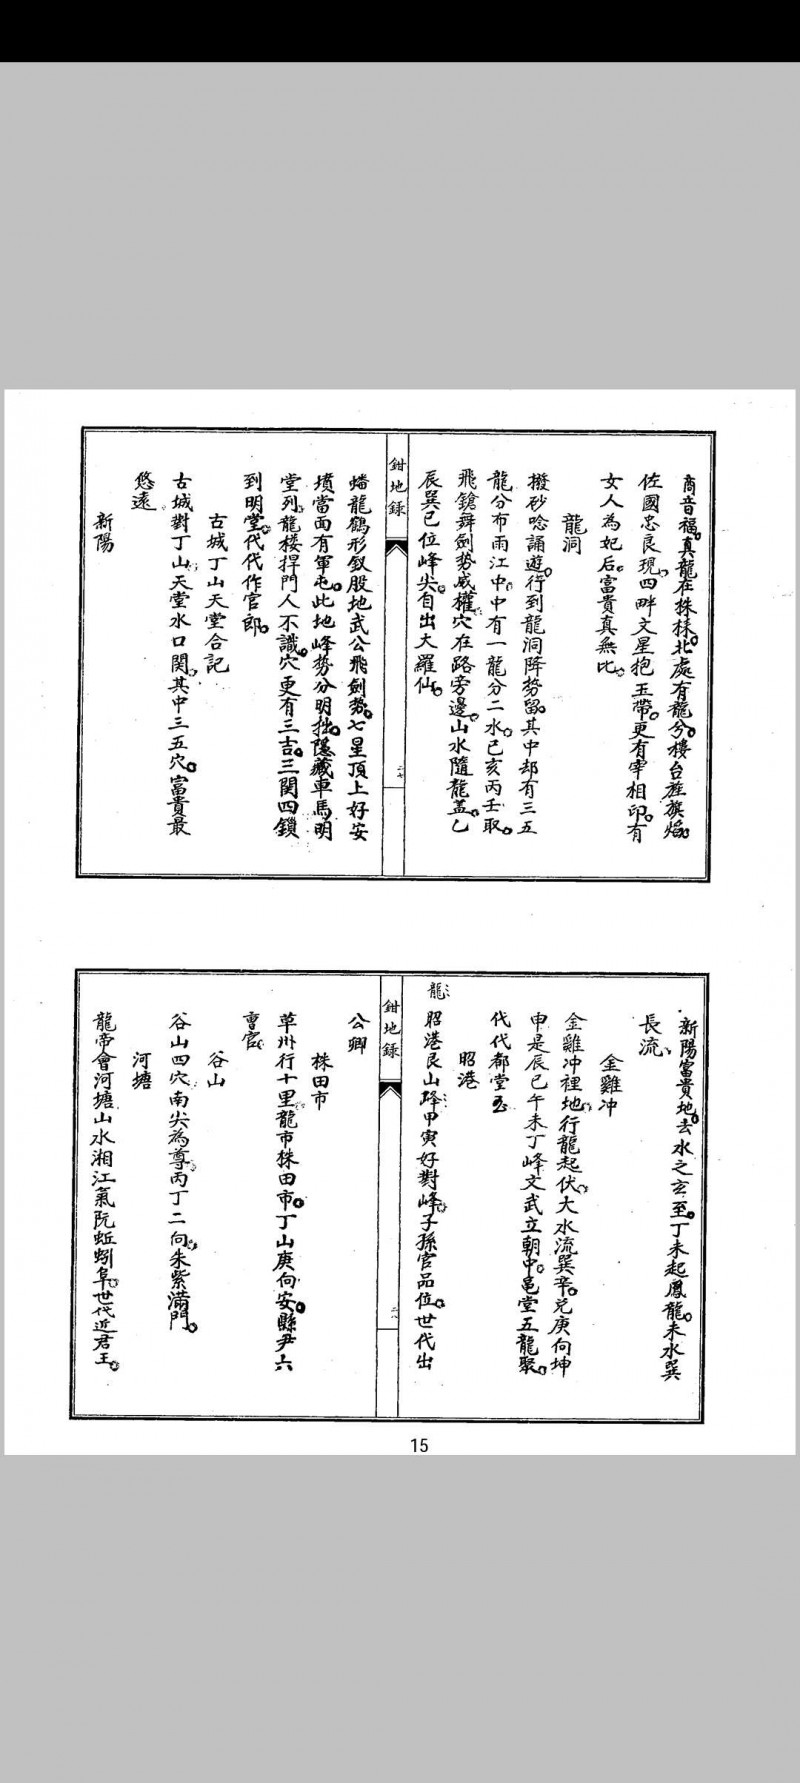 商音福。真龍在株林。北處有龍兮。樓台旌旗焰。
佐國忠良現。四畔文星抱玉帶。更有宰相印。有
女人為妃后。富貴真無比。
龍洞
撥砂唸誦遊。行到龍洞陣勢留。其中却有三五
龍分布兩江中。中有一龍分二水。巳亥丙壬取。
飛鎗舞劍勢威權。穴在路旁邊。山水隨龍蓋。乙
辰巽巳位峰尖。自出大羅仙。
鉗地錄
二七
蟠龍鶴形釵股地武公飛劍勢。七星頂上好安
墳當面有軍屯。此地峰勢分明拙。隱藏車馬明
堂列。龍楼捍門人不識。穴更有三吉。三関四鎖
到明堂。代代作官郎。
古城丁山天堂合記
古城對丁山天堂水口関。其中三五穴。富貴最
悠遠。
新陽
新陽富貴地。去水之玄至。丁未起鳳龍。未水巽
長流。
金雞冲
金雞冲裡地。行龍起伏。大水流巽辛。兌庚向坤
申是辰巳午未丁峰文武立朝中。黽堂五龍聚。
代代都堂
昭港
龍
昭港艮山峰甲寅好對峰。子孫官品位。世代出
鉗地錄
二八
公卿
株田市
草卅行十里龍市株田市。丁山庚向安。縣尹六
曹官。
谷山
谷山四穴南尖為尊。丙丁二向。朱紫滿門。
河塘
龍帝會河塘山水湘江氣阮蚯蚓阜。世代近君王。
15